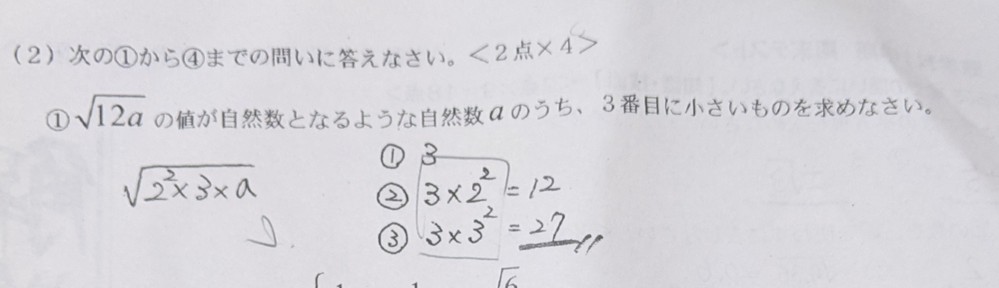 (2) 次の①から④までの問いに答えなさい。<2点×4>
①√12a の値が自然数となるような自然数 a のうち、3番目に小さいものを求めなさい。
① 3
√2²×3×a
② 3×2² = 12
③ 3×3² = 27
√6